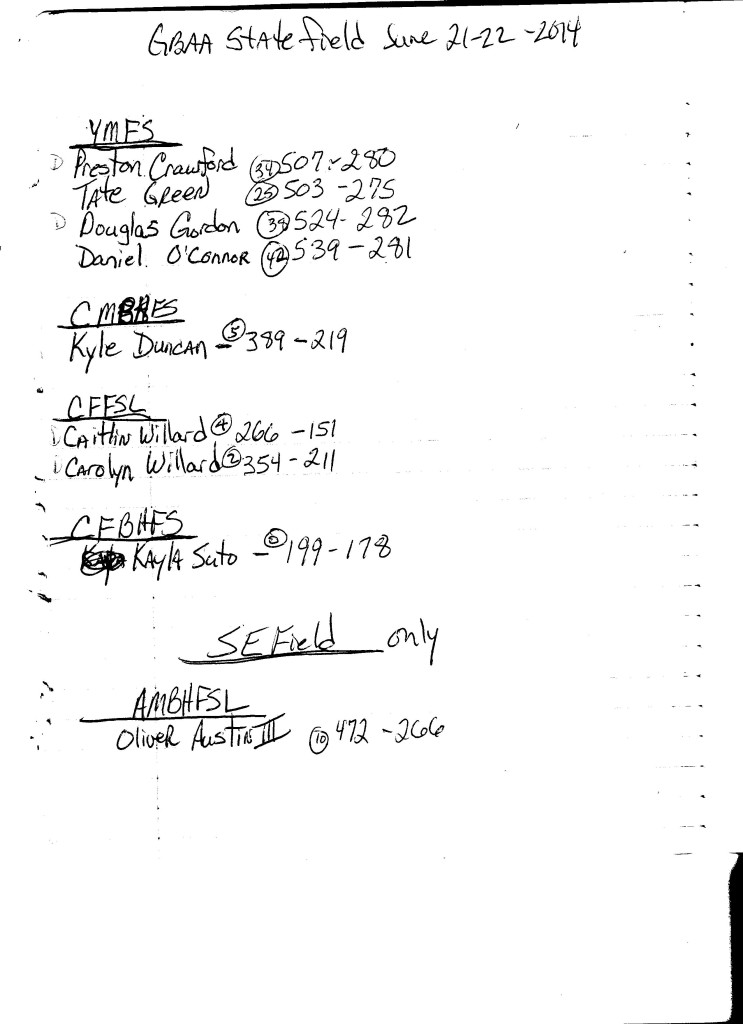 GBAA State Field June 21-22-2014
YMFS
D Preston Crawford (34) 507-280
Tate Green (25) 503-275
D Douglas Gordon (38) 524-282
Daniel O'Connor (42) 539-281
Kyle Duncan - (5) 389-219
CFFSL
Caitlin Willard (4) 266-151
Carolyn Willard (2) 354-211
CFBHFS
Kayla Suto - (0) 199-178
SE Field only
AMBHFSL
Oliver Austin III (10) 472-266